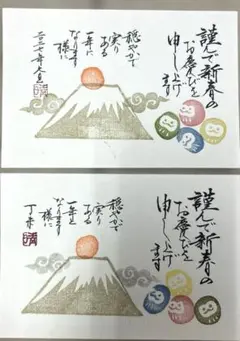 謹んで新春の
お慶びを
申し上げ
ます
穏やかで
実り
ある
一年に
なります
様に
二〇二七年元旦
謹んで新春の
お慶びを
申し上げ
ます
穏やかで
実り
ある
一年と
なります
様に
丁未